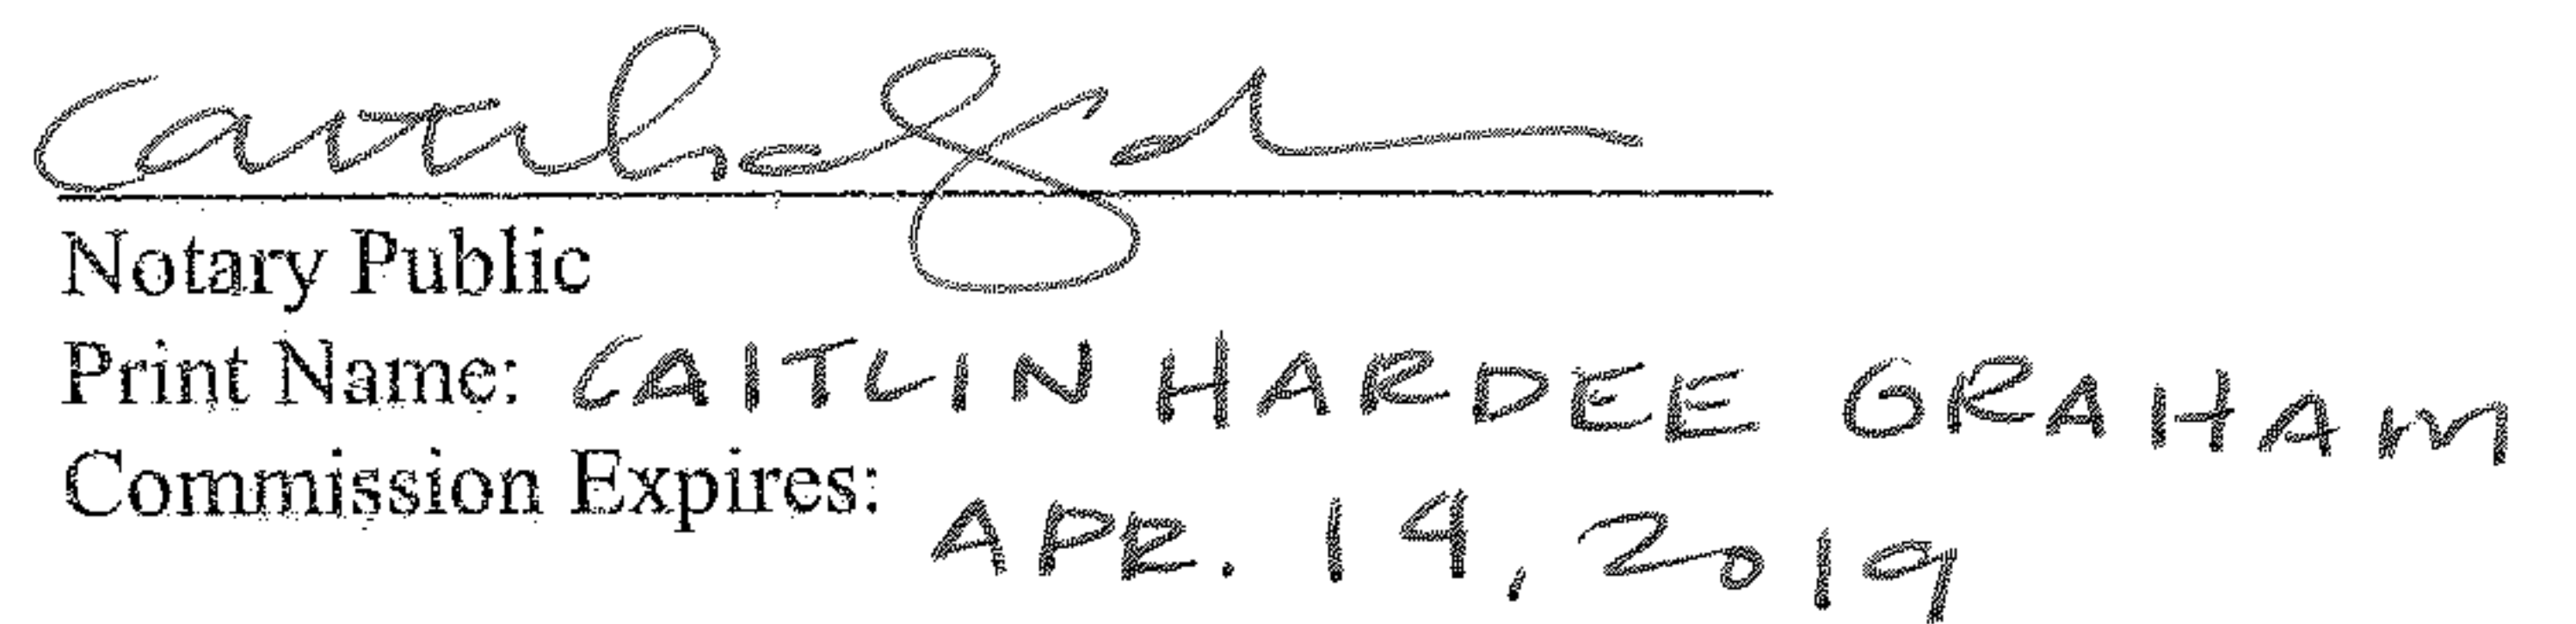 Notary Public
Print Name: CAITLIN HARDEE GRAHAM
Commission Expires: APR. 14, 2019